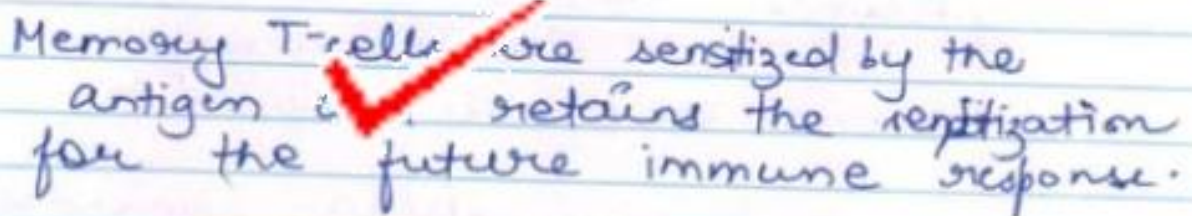 Memory T-cells are sensitized by the
antigen retains the sensitization
for the future immune response.